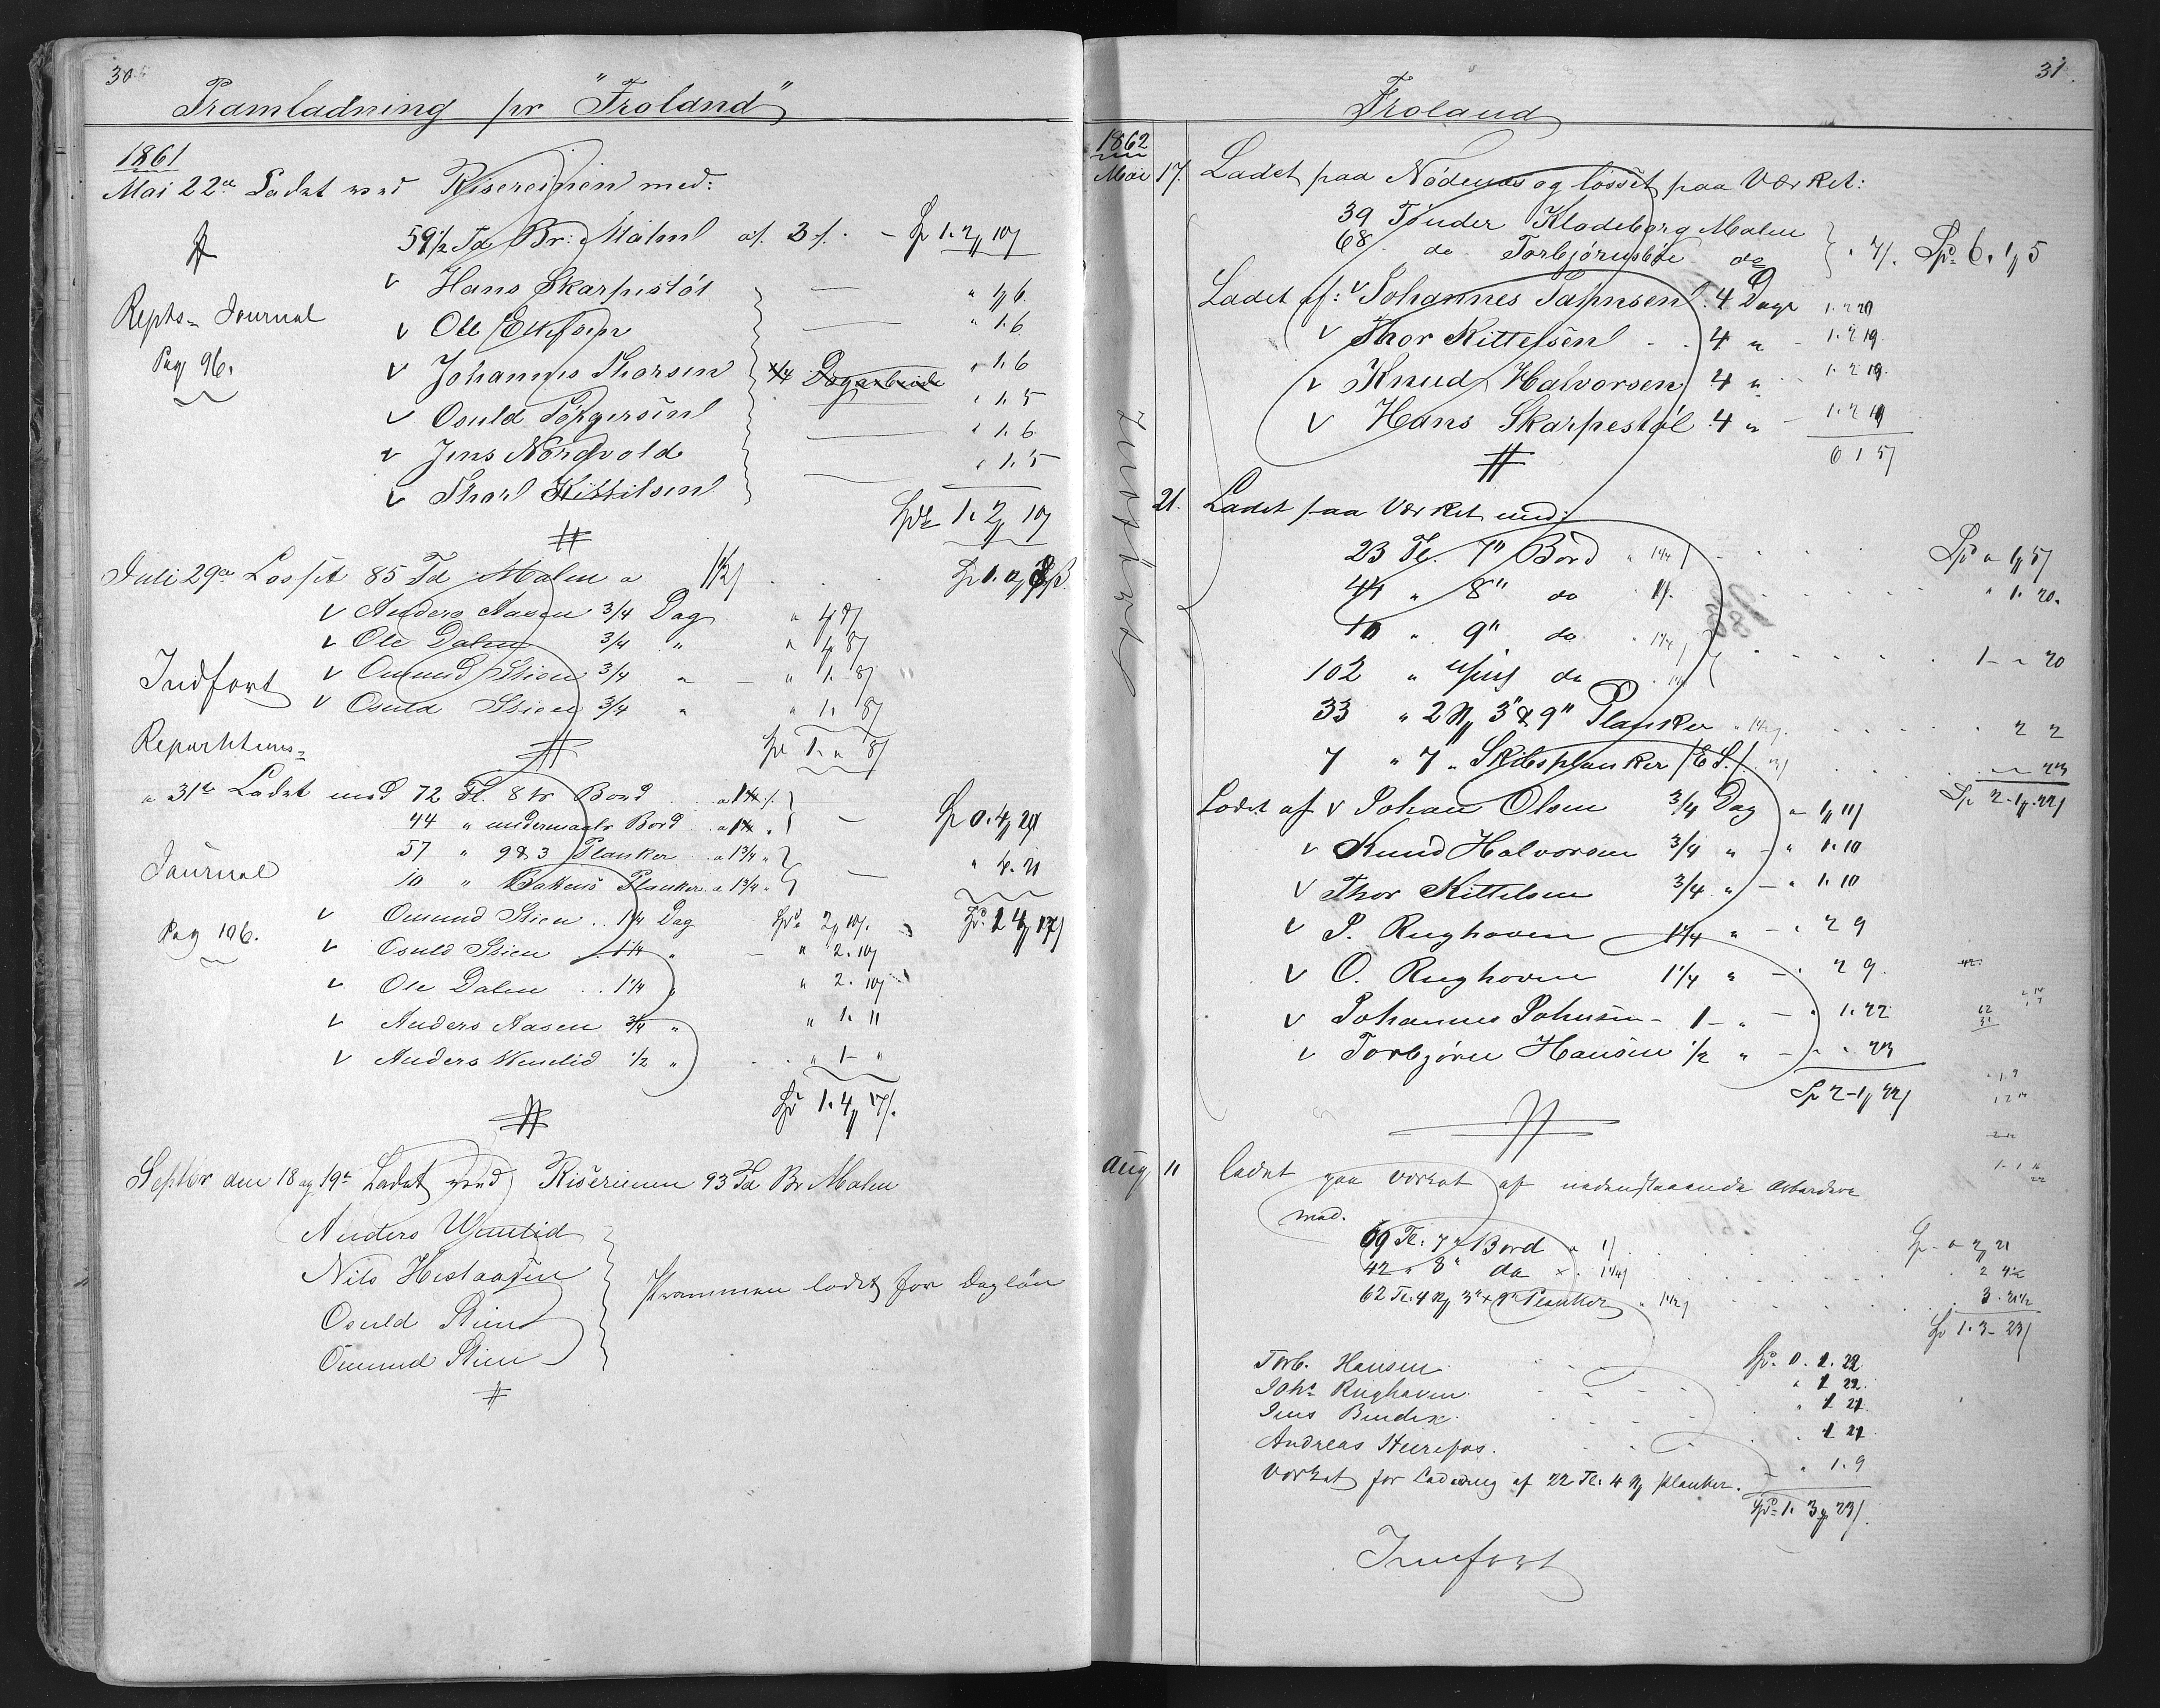 30
Pramladning pr "Froland"
1861
Mai 22de Ladet ved Risereien med:
59 1/2 Td Br: Malm af. 3 /. - Sp 1. 2 10
Repts= Journal
Pag 96.
v Hans Skarpestöl " 1 6.
v Ole Ellefsen " 1. 6
v Johannes Thorsen 3/4 Dagarbeide " 1. 6
v Osuld Törgersen " 1. 5
v Jens Nordvold " 1. 6
v Thor Kittilsen " 1. 5
Spd 1. 2 10
Juli 29de Losset 85 Td Malm a
v Anders Aasen 3/4 Dag
v Ole Dalen 3/4 "
v Omund Stien 3/4 " " 1. 8
v Osuld Stien 3/4 " " 1. 8
Indført
Repartitions=
Journal
Pag 106.
Sp 1. " 8
" 31te Ladet med 72 Tl. 8 tr Bord
44 " undermaals Bord
57 " 9 & 3 Planker a 1 3/4 "
10 " Planker a 1 3/4 "
Sp 0. 4 20
" 4. 21
Sp. 1 4 17
v Omund Stien .. 1 1/4 Dag Sp " 2 10
v Osuld Stien 1 1/4 " " 2. 10
v Ole Dalen .. 1 1/4 " " 2. 10
v Anders Aasen 3/4 " " 1. 11
v Anders Wenlid 1/2 " " 1 - "
Sp 1. 4 17
Septbr den 18 og 19de Ladet ved Risereien 93 Td Br Malm
Anders Wenlid
Nils Hestaasen
Osuld Stien
Omund Stien
Prammen ladet for Daglön
31.
Froland
1862
Mai 17. Ladet paa Nödenæs og lösset paa Værket:
39 Tönder Klodeborg Malm
68 do Torbjörnsböe do Spd 6. 1 5
Ladet af: v Johannes Johnsen 4 Dage 1. 2 20
v Thor Kittelsen 4 " 1. 2 19
v Knud Halvorsen 4 " 1. 2 19
v Hans Skarpestöl 4 " 1. 2 19
6 1 5
Indført
21. Ladet paa Værket med:
23 Tl. 7" Bord " 1 1/4 Sp " 1 5
44 " 8" do " 1. 20.
10 " 9" do
102 " do 1 - " 20
33 " 2 N 3" & 9" Planker " 2 2
7 " 7 " Skibsplanker /E S./ " 23
Sp 2. 1. 22
Ladet af v Johan Olsen 3/4 Dag " 1 11
v Knud Halvorsen 3/4 " - " 1. 10
v Thor Kittelsen 3/4 " - " 1. 10
v P. Rughaven 1 1/4 " - " 2 9
v O. Rughaven 1 1/4 " - " 2 9
v Johannes Johnsen - 1 - " - " 1. 22
v Torbjörn Hansen 1/2 " - " 23
Sp 2 - 1 22
Aug 11 ladet paa Værket af nedenstaaende Arbeidere
med.
69 Tl: 7" Bord Sp - " 2 21
42 " 8" do 2 4 1/2
62 Tl. 4 N 3" x 9" Planker 3. 21 1/2
Sp 1. 3 - 23
Torb. Hansen Sp. 0. 1. 22
Johs Rughaven " 1 22.
Jens Bendix " 1 21
Andreas " 1 21
Værket for Ladning af 22 Tl: 4 N Planker. " 1. 9
Spd 1. 3 23
Indført